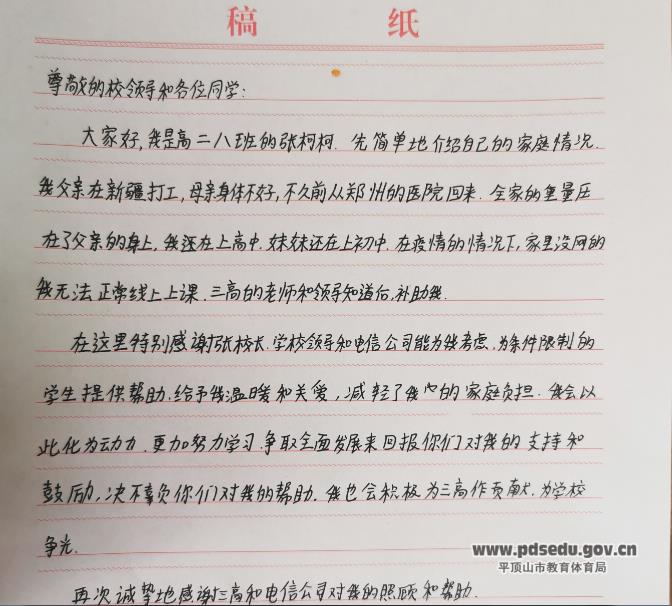 稿 纸
尊敬的校领导和各位同学:
大家好,我是高二八班的张柯柯.先简单地介绍自己的家庭情况.
我父亲在新疆打工,母亲身体不好,不久前从郑州的医院回来.全家的重量压
在了父亲的身上,我还在上高中.妹妹还在上初中.在疫情的情况下,家里没网的
我无法正常线上上课.三高的老师和领导知道后,补助我.
在这里特别感谢张校长.学校领导和电信公司能为我考虑,为条件限制的
学生提供帮助.给予我温暖和关爱,减轻了我的家庭负担.我会以
此化为动力.更加努力学习.争取全面发展来回报你们对我的支持和
鼓励,决不辜负你们对我的帮助.我也会积极为三高作贡献.为学校
争光.
www.pdsedu.gov.cn
平顶山市教育体育局
再次诚挚地感谢三高和电信公司对我的照顾和帮助.